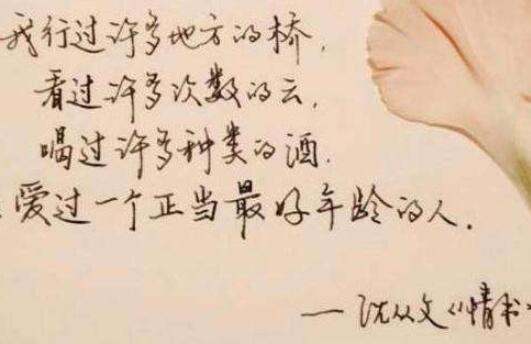 我行过许多地方的桥,
看过许多次数的云,
喝过许多种类的酒.
爱过一个正当最好年龄的人.
——沈从文《情书》